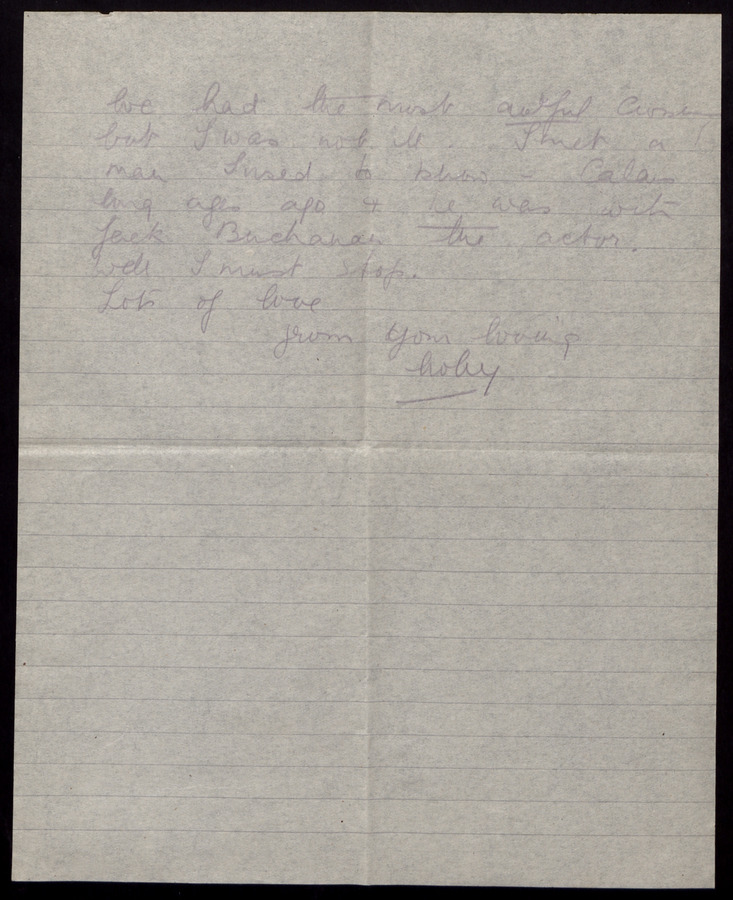 We had the most awful Crossing
but I was not ill. I met a
man I used to know in Calais
long ages ago & he was with
Jack Buchanan the actor.
Well I must stop.
Lots of love
from your loving